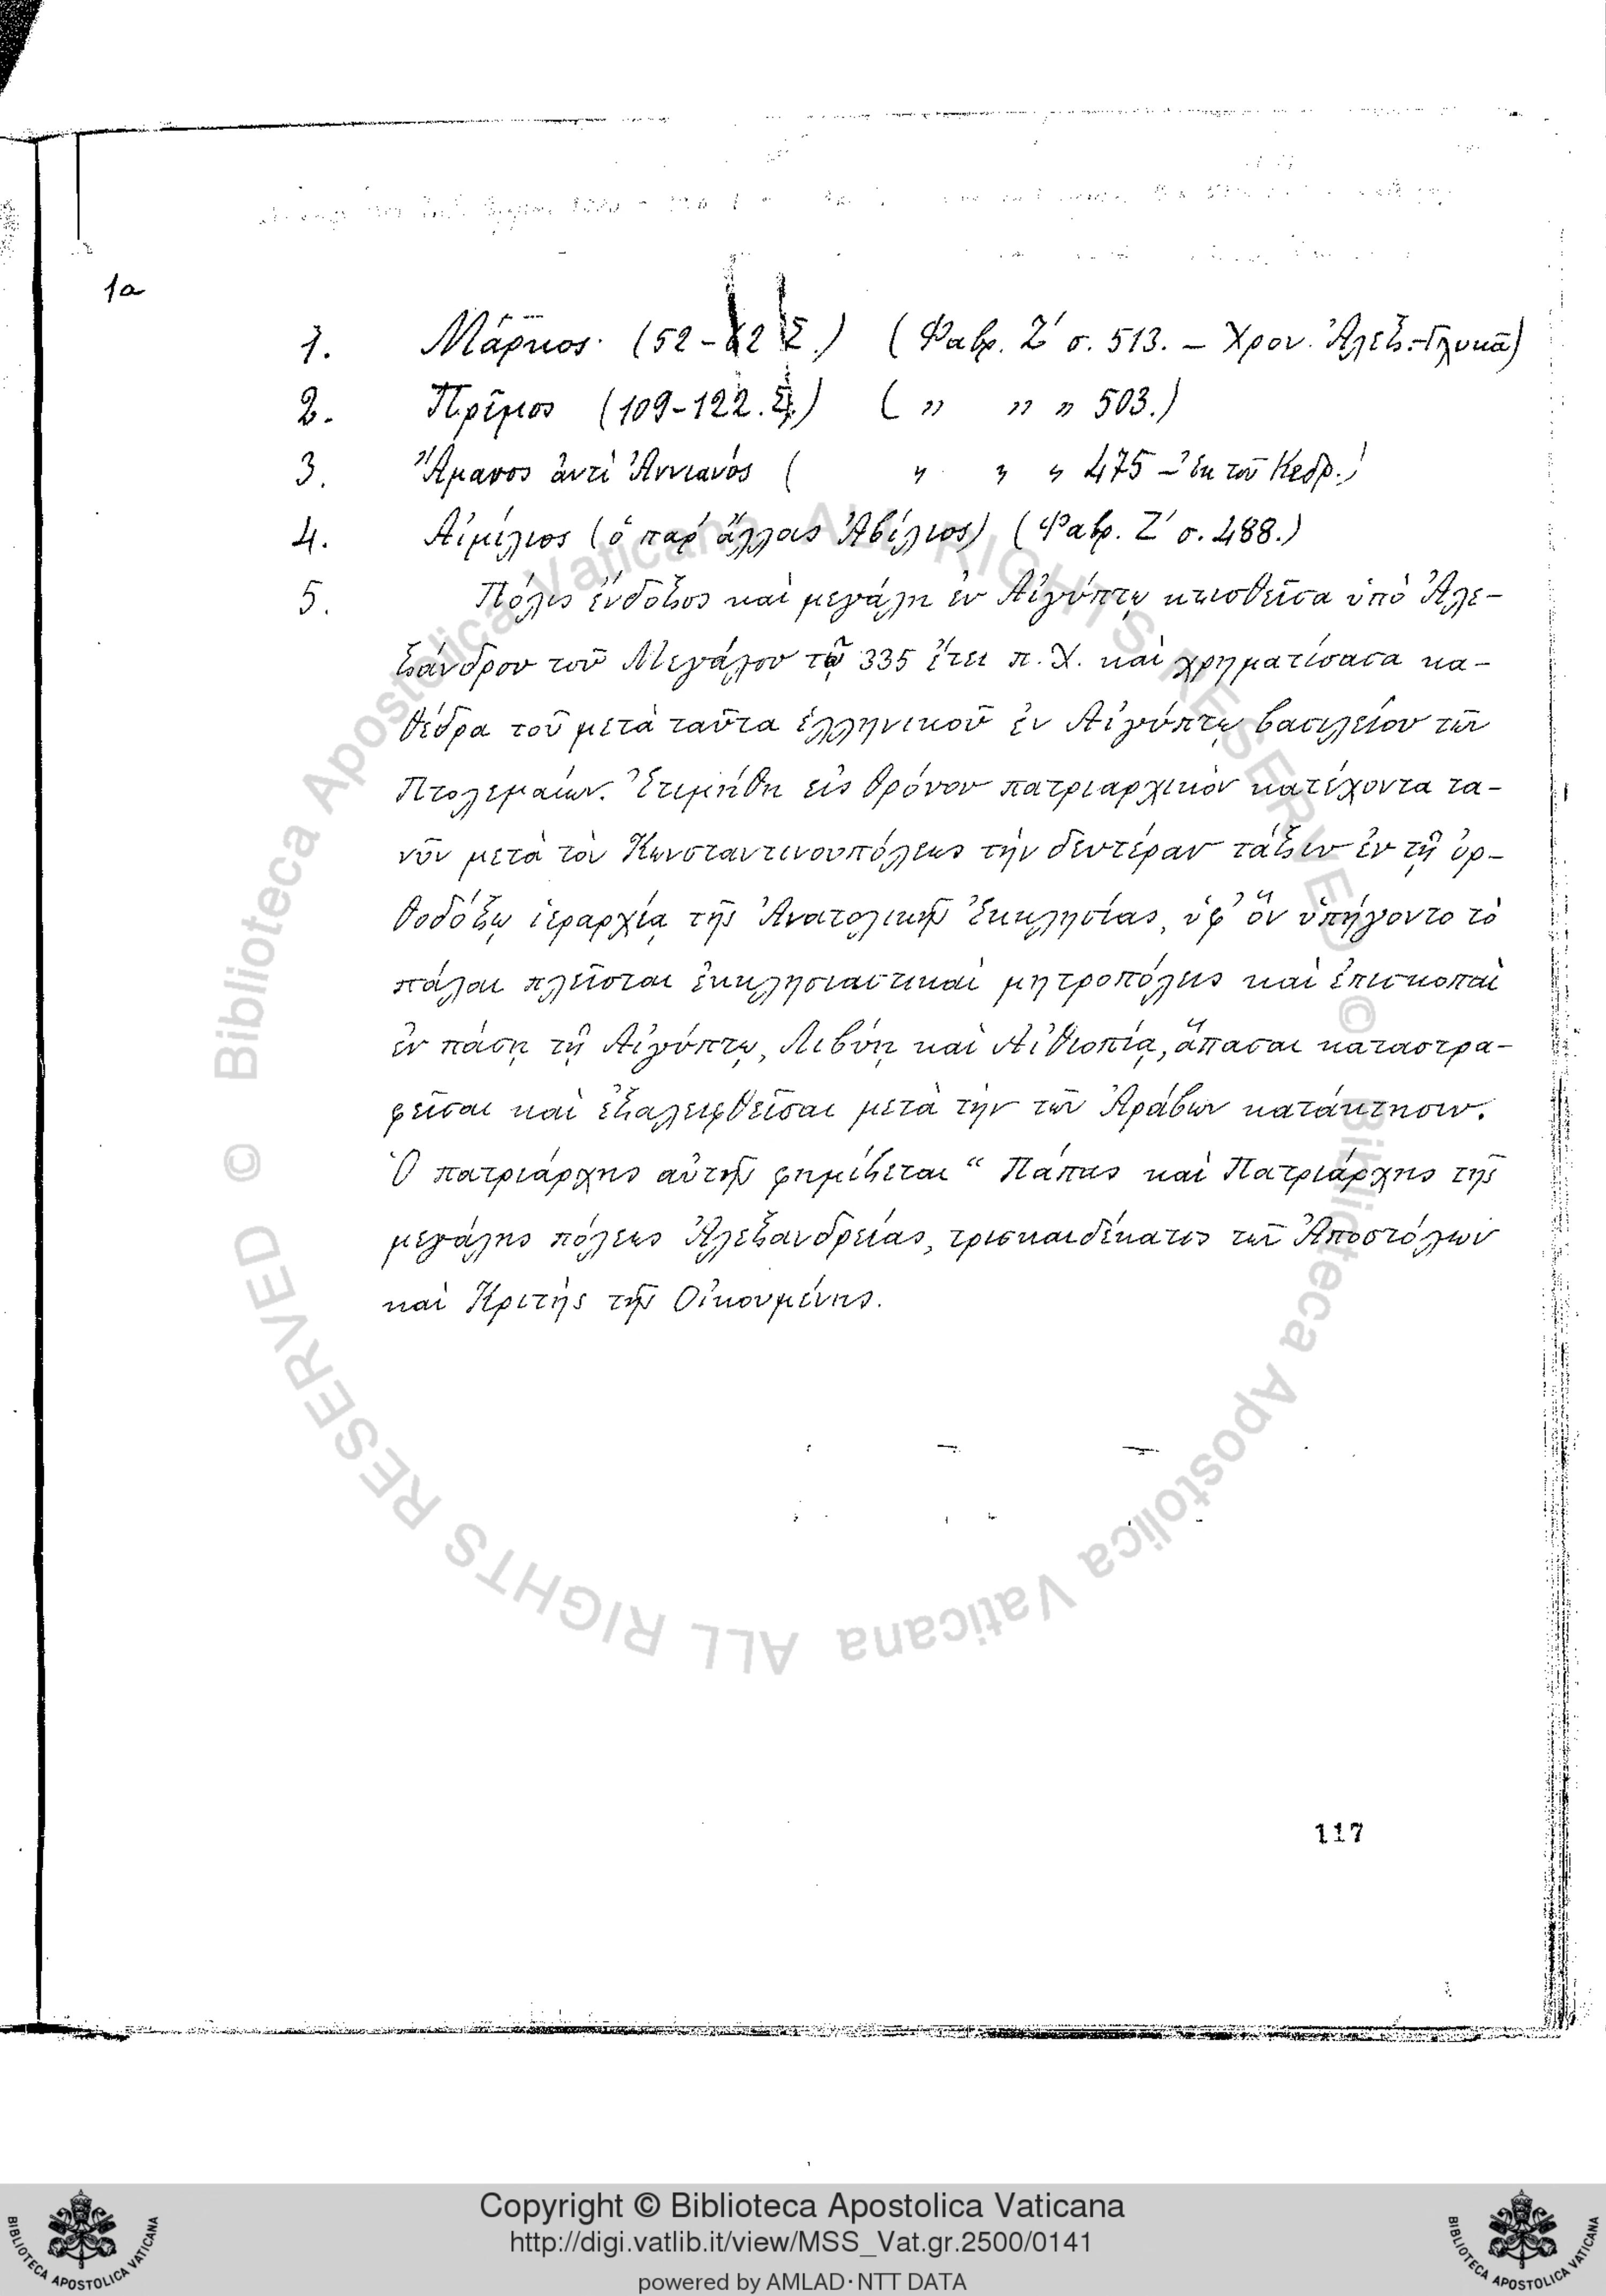 1a
1. Μάρκος. (52-62 Σ.) (Φαβρ. Ζ΄ σ. 513. – Χρον. Ἀλεξ.-Γλυκᾶ)
2. Πρῖμος (109-122. Σ.) ( „ „ „ 503.)
3. Ἄμανος ἀντὶ Ἀννιανός ( „ „ „ 475 – ἐκ τοῦ Κεδρ.)
4. Αἰμίλιος (ὁ παρ' ἄλλοις Ἀβίλιος) (Φαβρ. Ζ΄ σ. 488.)
5. Πόλις ἔνδοξος καὶ μεγάλη ἐν Αἰγύπτῳ κτισθεῖσα ὑπὸ Ἀλε-
ξάνδρου τοῦ Μεγάλου τῷ 335 ἔτει π. Χ. καὶ χρηματίσασα κα-
θέδρα τοῦ μετὰ ταῦτα ἑλληνικοῦ ἐν Αἰγύπτῳ βασιλείου τῶν
Πτολεμαίων. Ἐτιμήθη εἰς θρόνον πατριαρχικὸν κατέχοντα τα-
νῦν μετὰ τὸν Κωνσταντινουπόλεως τὴν δευτέραν τάξιν ἐν τῇ ὀρ-
θοδόξῳ ἱεραρχίᾳ τῆς Ἀνατολικῆς Ἐκκλησίας, ὑφ' ὃν ὑπήγοντο τὸ
πάλαι πλεῖσται ἐκκλησιαστικαὶ μητροπόλεις καὶ ἐπισκοπαὶ
ἐν πάσῃ τῇ Αἰγύπτῳ, Λιβύῃ καὶ Αἰθιοπίᾳ, ἅπασαι καταστρα-
φεῖσαι καὶ ἐξαλειφθεῖσαι μετὰ τὴν τῶν Ἀράβων κατάκτησιν.
Ὁ πατριάρχης αὐτῆς φημίζεται “ Πάπας καὶ Πατριάρχης τῆς
μεγάλης πόλεως Ἀλεξανδρείας, τρισκαιδέκατος τῶν Ἀποστόλων
καὶ Κριτὴς τῆς Οἰκουμένης.
117
© Biblioteca Apostolica Vaticana ALL RIGHTS RESERVED © Biblioteca Apostolica Vaticana ALL RIGHTS RESERVED
Copyright © Biblioteca Apostolica Vaticana
http://digi.vatlib.it/view/MSS_Vat.gr.2500/0141
powered by AMLAD·NTT DATA
BIBLIOTECA APOSTOLICA VATICANA
BIBLIOTECA APOSTOLICA VATICANA